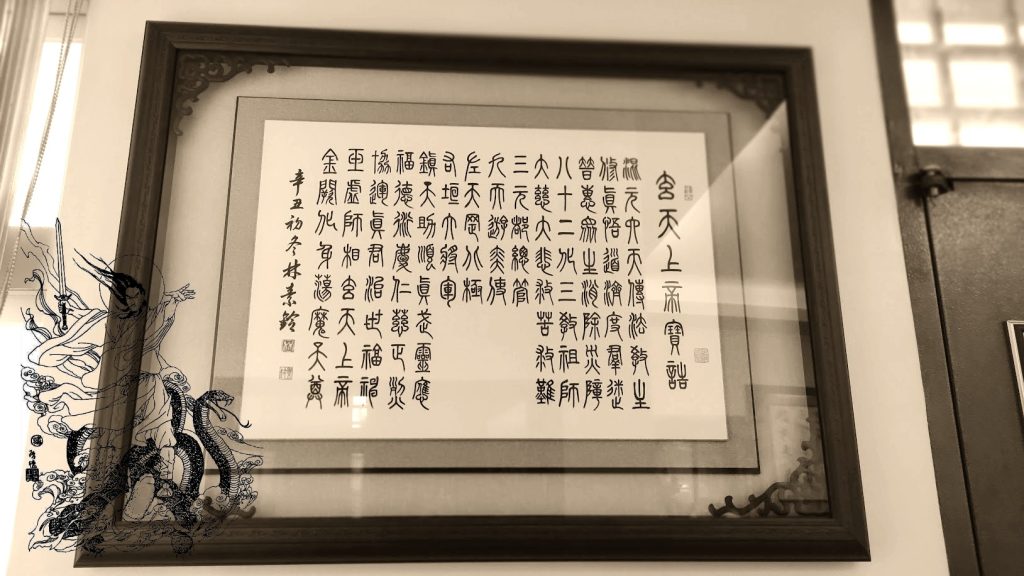 玄天上帝寶誥
混元六天傳法教主
修真悟道濟度羣迷
普惠眾生消除災障
八十二化三教祖師
大慈大悲救苦救難
三元都總管
九天遊奕使
左天罡北極
右垣大將軍
鎮天助順真武靈應
福德衍慶仁慈正烈
協運真君治世福神
玉虛師相玄天上帝
金闕化身蕩魔天尊
辛丑初冬林素鈴